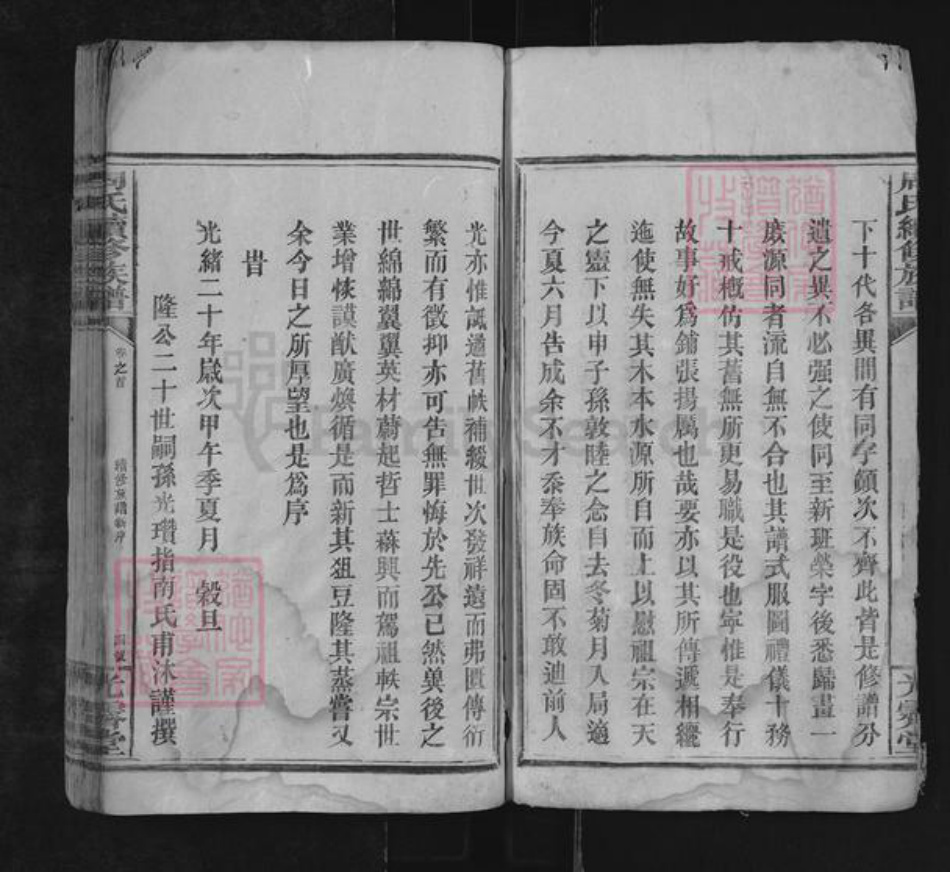 下十代各異間有同字顛次不齊此皆是修譜分
遺之異不必强之使同至新班榮字後悉歸畫一
庶源同者流自無不合也其譜式服圖禮儀十務
十戒概仿其舊無所更易職是役也寧惟是奉行
故事好爲鋪張揚厲也哉要亦以其所傳遞相纚
迤使無失其木本水源所自而上以慰祖宗在天
之靈下以申子孫敦睦之念自去冬菊月入局適
今夏六月告成余不才忝奉族命固不敢迪前人
光亦惟祗遹舊帙補綴世次發祥遠而弗匱傳衍
繁而有徵抑亦可告無罪悔於先公已然冀後之
世綿綿翼翼英材蔚起哲士蘇興而駕祖軼宗世
業增恢謨猷廣煥循是而新其俎豆隆其蒸嘗又
余今日之所厚望也是爲序
旹
光緒二十年歲次甲午季夏月 榖旦
隆公二十世嗣孫光瓚指南氏甫沐謹撰
周氏續修族譜
卷之首
續修族譜新序
FamilySearch